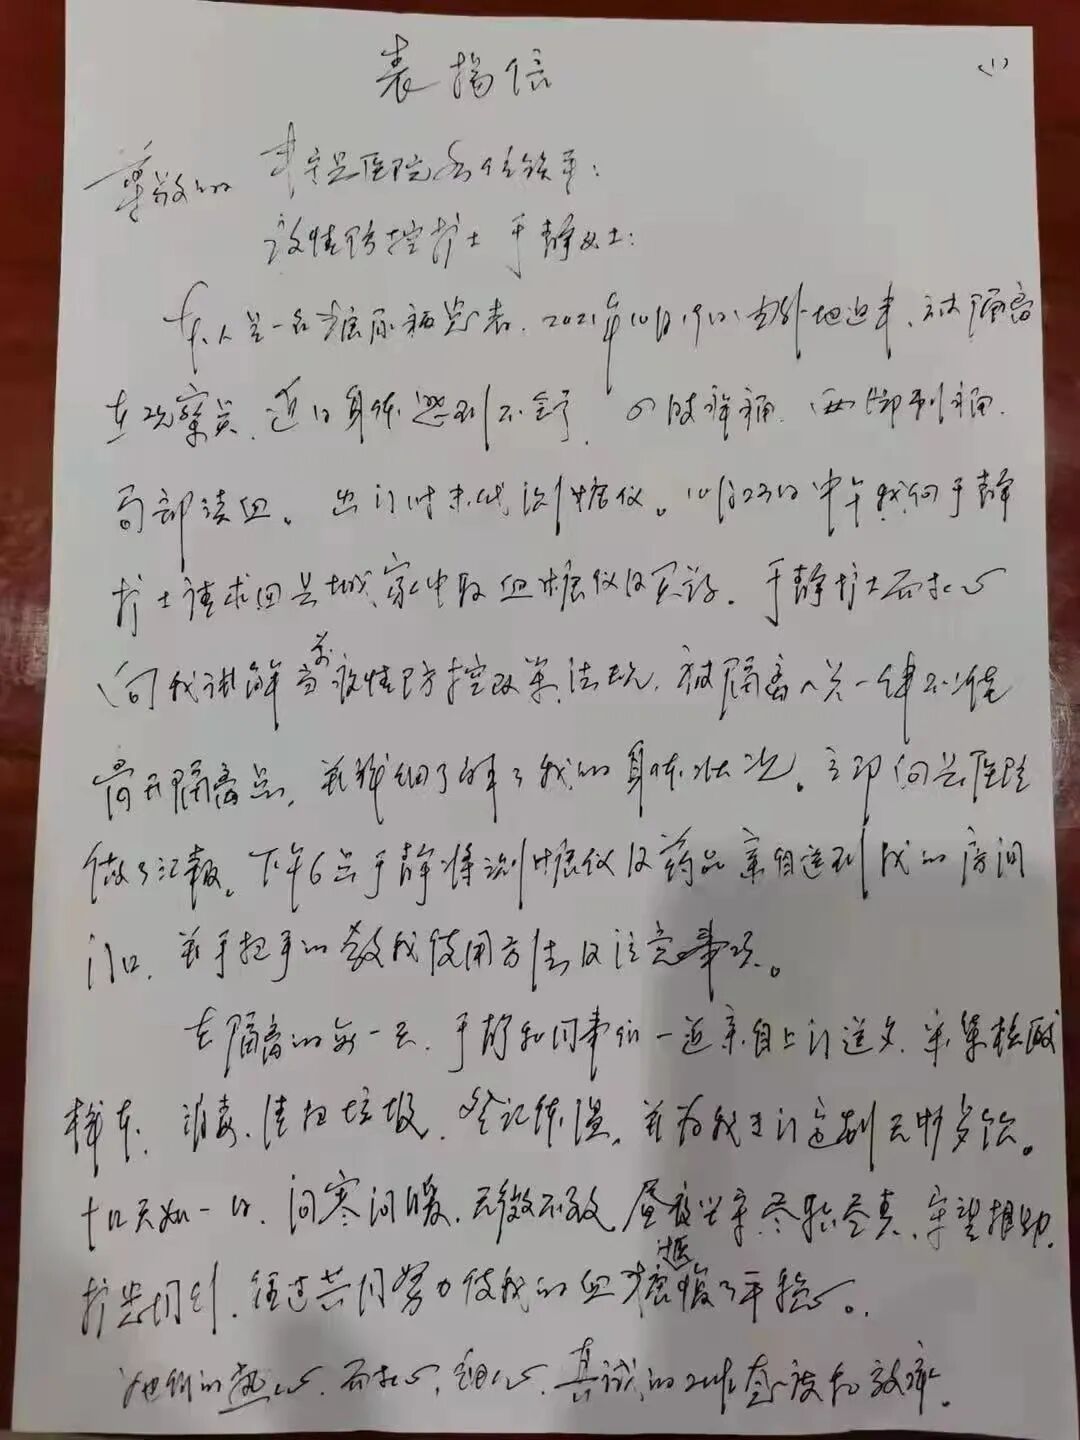 表扬信
(1)
尊敬的 县医院各位领导:
疫情防控护士于静女士:
本人是一名糖尿病患者,2021年10月19日,由外地返来,被隔离
在观察点,近日身体感到不舒,四肢疼痛,两脚刺痛,
局部淤血。出门时未代测糖仪。10月23日中午我向于静
护士请求回县城家中取血糖仪及买药。于静护士而耐心
向我讲解当前疫情防控政策法规,被隔离人员一律不准
离开隔离点,并详细了解了我的身体状况。立即向县医院
做了汇报。下午6点于静将测糖仪及药品亲自送到我的房间
门口,并手把手的教我使用方法及注意事项。
在隔离的每一天,于静和同事们一边亲自上门送 ,采集核酸
样本,消毒、清扫垃圾,登记体温,并为我 制 。
十四天如一日,问寒问暖,无微不至,昼夜 、尽 尽责、守望相助,
,经过共同努力使我的血糖 恢复了平稳。
她们的热心,耐心,细心,真诚的工作态度和 。